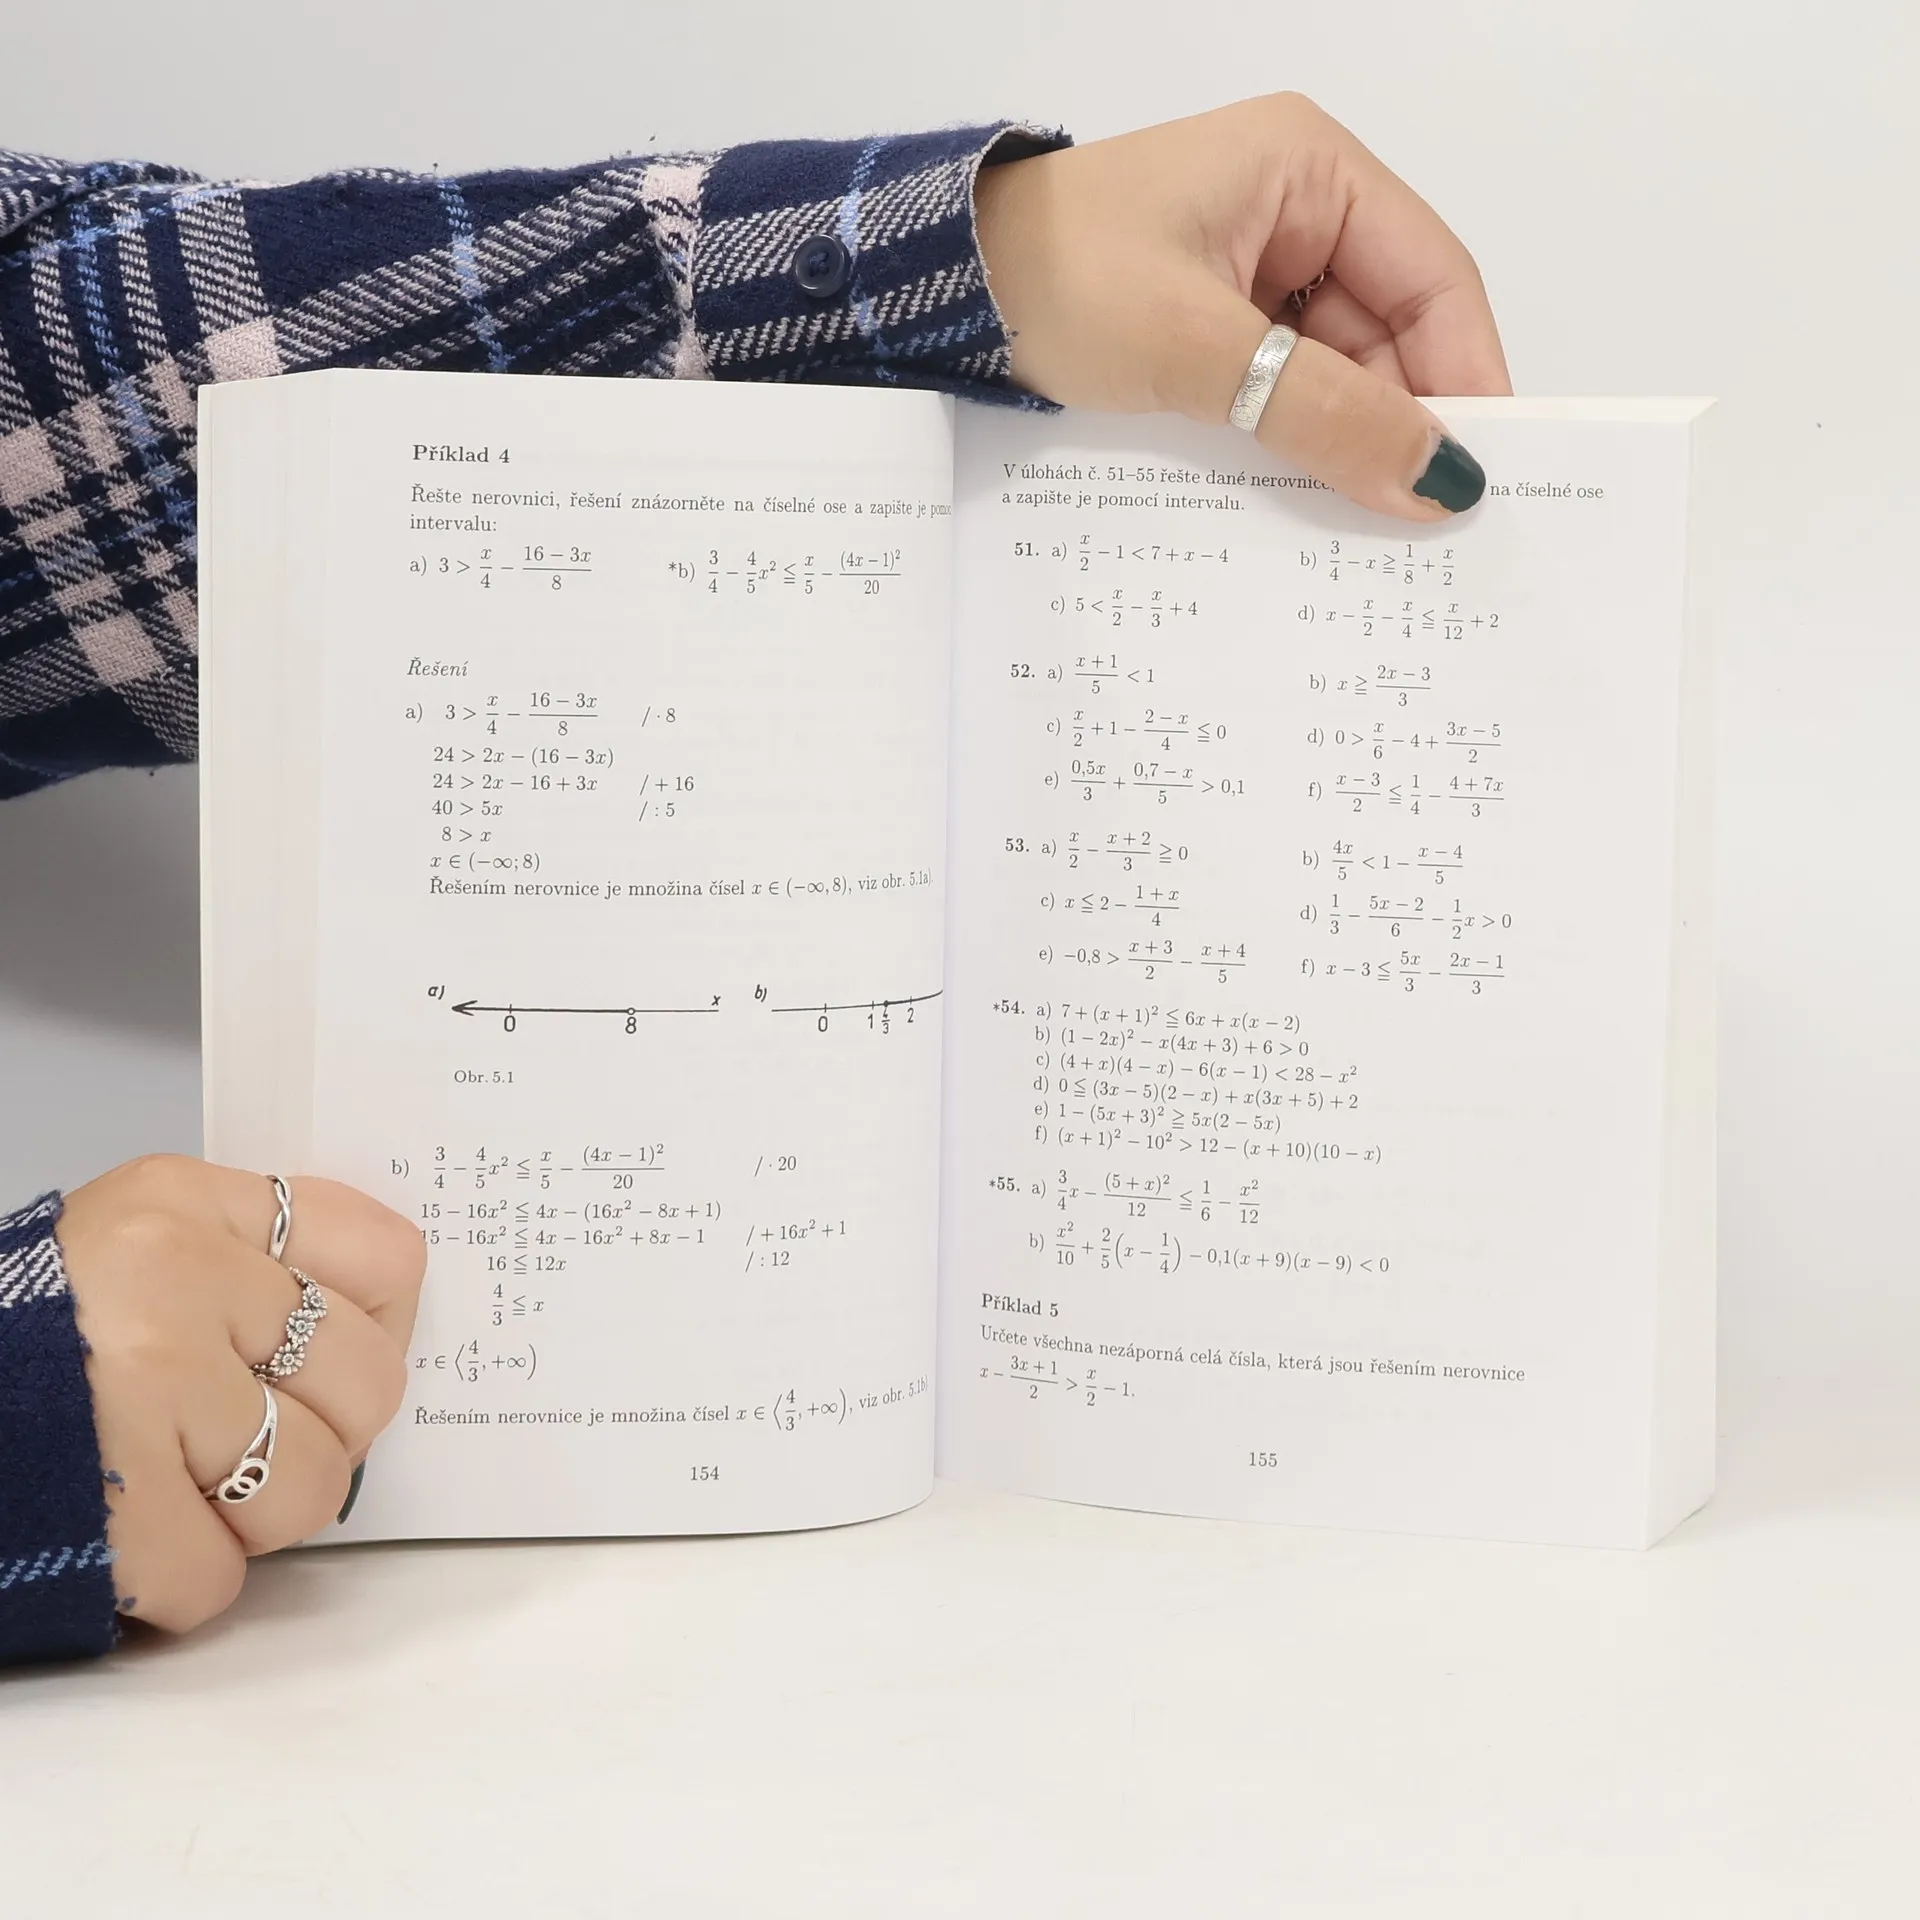 Příklad 4
Řešte nerovnici, řešení znázorněte na číselné ose a zapište je
intervalu:
a) 3 > x/4 − (16 − 3x)/8 *b) 3/4 − 4/5 x² ≦ x/5 − (4x − 1)²/20
Řešení
a) 3 > x/4 − (16 − 3x)/8 / · 8
24 > 2x − (16 − 3x)
24 > 2x − 16 + 3x / + 16
40 > 5x / : 5
8 > x
x ∈ (−∞; 8)
Řešením nerovnice je množina čísel x ∈ (−∞, 8), viz obr. 5.1a).
a) 0 8 x b) 0 1 4/3 2
Obr. 5.1
b) 3/4 − 4/5 x² ≦ x/5 − (4x − 1)²/20 / · 20
15 − 16x² ≦ 4x − (16x² − 8x + 1)
15 − 16x² ≦ 4x − 16x² + 8x − 1 / + 16x² + 1
16 ≦ 12x / : 12
4/3 ≦ x
x ∈ ⟨4/3, +∞)
Řešením nerovnice je množina čísel x ∈ ⟨4/3, +∞), viz obr. 5.1b)
154
V úlohách č. 51–55 řešte dané nerovnice, na číselné ose
a zapište je pomocí intervalu.
51. a) x/2 − 1 < 7 + x − 4 b) 3/4 − x ≧ 1/8 + x/2
c) 5 < x/2 − x/3 + 4 d) x − x/2 − x/4 ≦ x/12 + 2
52. a) (x + 1)/5 < 1 b) x ≧ (2x − 3)/3
c) x/2 + 1 − (2 − x)/4 ≦ 0 d) 0 > x/6 − 4 + (3x − 5)/2
e) 0,5x/3 + (0,7 − x)/5 > 0,1 f) (x − 3)/2 ≦ 1/4 − (4 + 7x)/3
53. a) x/2 − (x + 2)/3 ≧ 0 b) 4x/5 < 1 − (x − 4)/5
c) x ≦ 2 − (1 + x)/4 d) 1/3 − (5x − 2)/6 − 1/2 x > 0
e) −0,8 > (x + 3)/2 − (x + 4)/5 f) x − 3 ≦ 5x/3 − (2x − 1)/3
*54. a) 7 + (x + 1)² ≦ 6x + x(x − 2)
b) (1 − 2x)² − x(4x + 3) + 6 > 0
c) (4 + x)(4 − x) − 6(x − 1) < 28 − x²
d) 0 ≦ (3x − 5)(2 − x) + x(3x + 5) + 2
e) 1 − (5x + 3)² ≧ 5x(2 − 5x)
f) (x + 1)² − 10² > 12 − (x + 10)(10 − x)
*55. a) 3/4 x − (5 + x)²/12 ≦ 1/6 − x²/12
b) x²/10 + 2/5 (x − 1/4) − 0,1(x + 9)(x − 9) < 0
Příklad 5
Určete všechna nezáporná celá čísla, která jsou řešením nerovnice
x − (3x + 1)/2 > x/2 − 1.
155